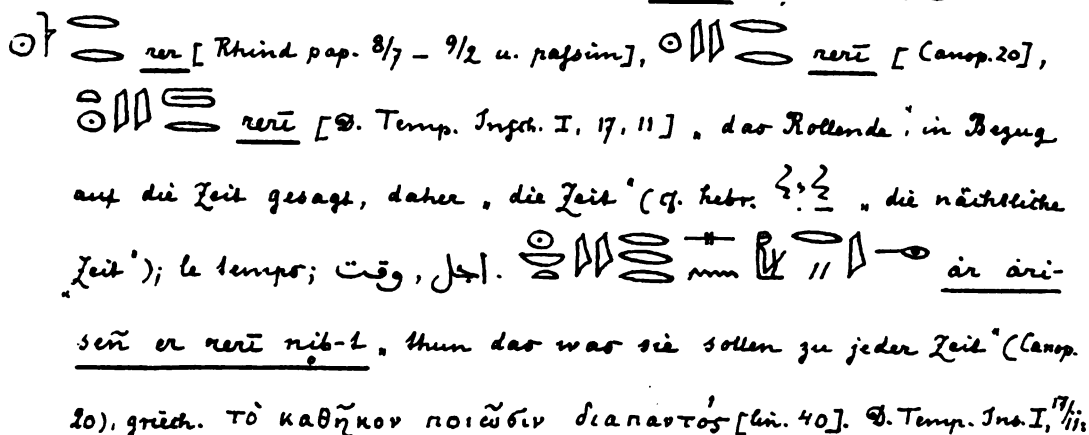 rer [Rhind pap. 8/7 – 9/2 u. passim], rerī [Canop. 20],
rerī [D. Temp. Insch. I, 17, 11] „das Rollende“, in Bezug
auf die Zeit gesagt, daher „die Zeit“ (cf. hebr. לַיִל „die nächtliche
„Zeit“); le temps; أجل , وقت. ȧr ȧri-
señ er rerī nib-t „thun das was sie sollen zu jeder Zeit“ (Canop.
20), griech. τὸ καθῆκον ποιῶσιν διαπαντός [lin. 40]. D. Temp. Ins. I, 17/11: